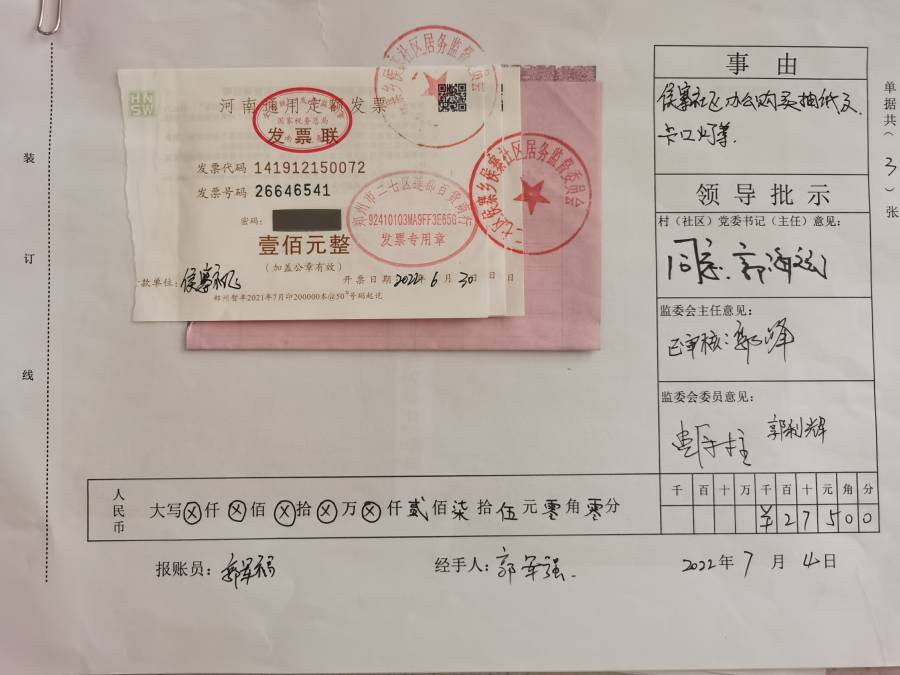 事由
侯寨社区办公购买抽纸及
卡口灯等
单据共(3)张
领导批示
村（社区）党委书记（主任）意见：
同意 郭海
监委会主任意见：
已审核：郭峰
监委会委员意见：
郭利辉
河南通用定额发票
国家税务总局
发票联
发票代码 141912150072
发票号码 26646541
密码：
壹佰元整
（加盖公章有效）
款单位：侯寨
开票日期 2022年6月30日
郑州市二七区莲都百货商行
92410103MA9FF3E65G
发票专用章
二七区侯寨乡侯寨社区居务监督委员会
侯寨乡侯寨社区居务监督委员会
装
订
线
人民币
大写⊗仟⊗佰⊗拾⊗万⊗仟贰佰柒拾伍元零角零分
千百十万千百十元角分
¥27500
报账员：郭军
经手人：郭军强.
2022年7月4日